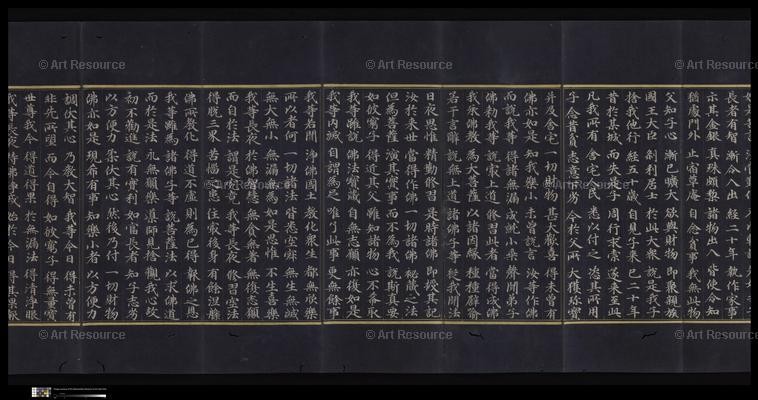 長者有智 漸令入出 經二十年 執作家事
示其金銀 真珠頗梨 諸物出入 皆使令知
猶處門外 止宿草庵 自念貧事 我無此物
父知子心 漸已曠大 欲與財物 即聚親族
國王大臣 剎利居士 於此大眾 說是我子
捨我他行 經五十歲 自見子來 已二十年
昔於某城 而失是子 周行求索 遂來至此
凡我所有 舍宅人民 悉以付之 恣其所用
子念昔貧 志意下劣 今於父所 大獲珍寶
并及舍宅 一切財物 甚大歡喜 得未曾有
佛亦如是 知我樂小 未曾說言 汝等作佛
而說我等 得諸無漏 成就小乘 聲聞弟子
佛勅我等 說最上道 修習此者 當得成佛
我承佛教 為大菩薩 以諸因緣 種種譬喻
若干言辭 說無上道 諸佛子等 從我聞法
日夜思惟 精勤修習 是時諸佛 即授其記
汝於來世 當得作佛 一切諸佛 祕藏之法
但為菩薩 演其實事 而不為我 說斯真要
如彼窮子 得近其父 雖知諸物 心不希取
我等雖說 佛法寶藏 自無志願 亦復如是
我等內滅 自謂為足 唯了此事 更無餘事
我等若聞 淨佛國土 教化眾生 都無欣樂
所以者何 一切諸法 皆悉空寂 無生無滅
無大無小 無漏無為 如是思惟 不生喜樂
我等長夜 於佛智慧 無貪無著 無復志願
而自於法 謂是究竟 我等長夜 修習空法
得脫三界 苦惱之患 住最後身 有餘涅槃
佛所教化 得道不虛 則為已得 報佛之恩
我等雖為 諸佛子等 說菩薩法 以求佛道
而於是法 永無願樂 導師見捨 觀我心故
初不勸進 說有實利 如富長者 知子志劣
以方便力 柔伏其心 然後乃付 一切財物
佛亦如是 現希有事 知樂小者 以方便力
調伏其心 乃教大智 我等今日 得未曾有
非先所望 而今自得 如彼窮子 得無量寶
世尊我今 得道得果 於無漏法 得清淨眼
我等長夜 持佛淨戒 始於今日 得其果報
© Art Resource
© Art Resource
© Art Resource
© Art Resource
© Art Resource
© Art Resource
© Art Resource
© Art Resource
© Art Resource